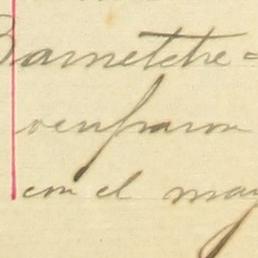 Barnetche =
ocuparon
con el may